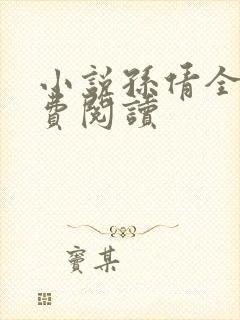 小説孫倩全
費閱讀
竇某